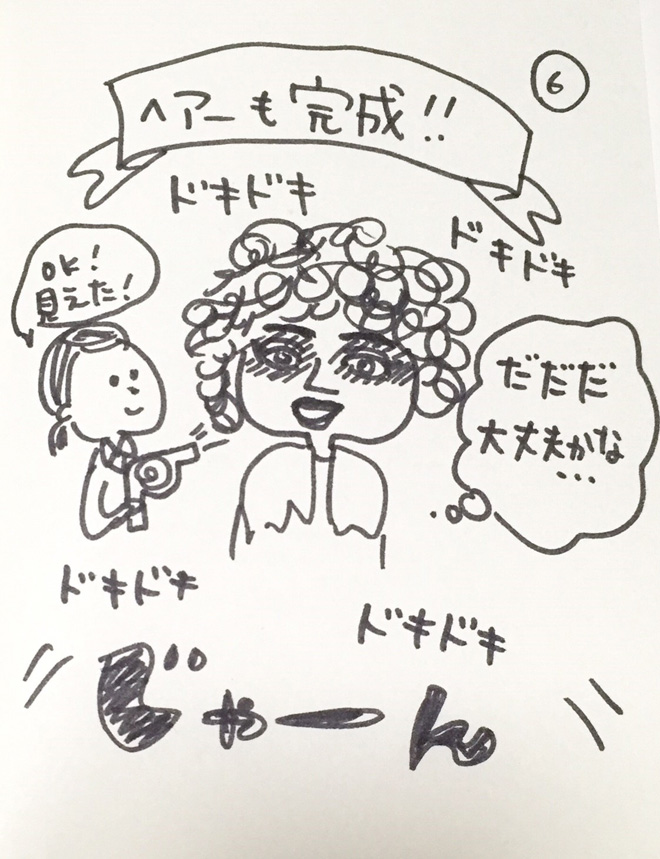 6
ヘアーも完成!!
ドキドキ
ドキドキ
OK!
見えた!
だだだ
大丈夫かな
...
ドキドキ
ドキドキ
じゃーん